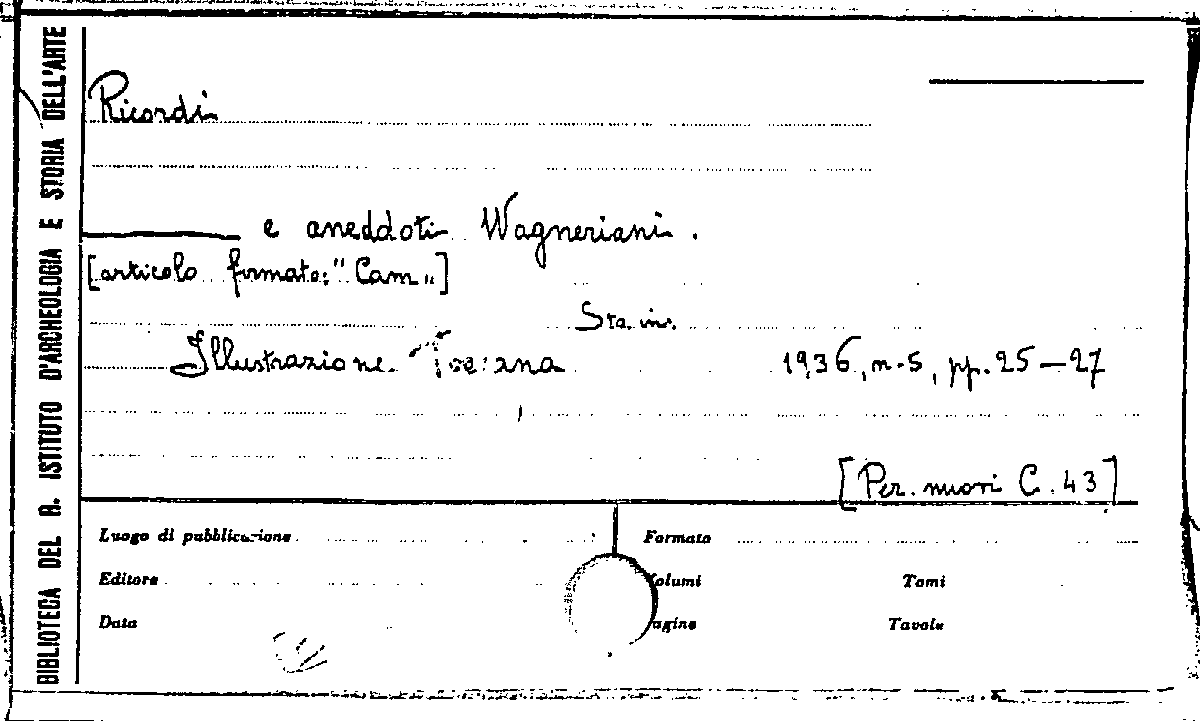 BIBLIOTECA DEL R. ISTITUTO D'ARCHEOLOGIA E STORIA DELL'ARTE
Ricordi
e aneddoti Wagneriani.
[articolo firmato: "Cam„]
Sta in:
Illustrazione Toscana 1936, n. 5, pp. 25-27
[Per. nuovi C. 43]
Luogo di pubblicazione Formato
Editore Volumi Tomi
Data Pagine Tavole